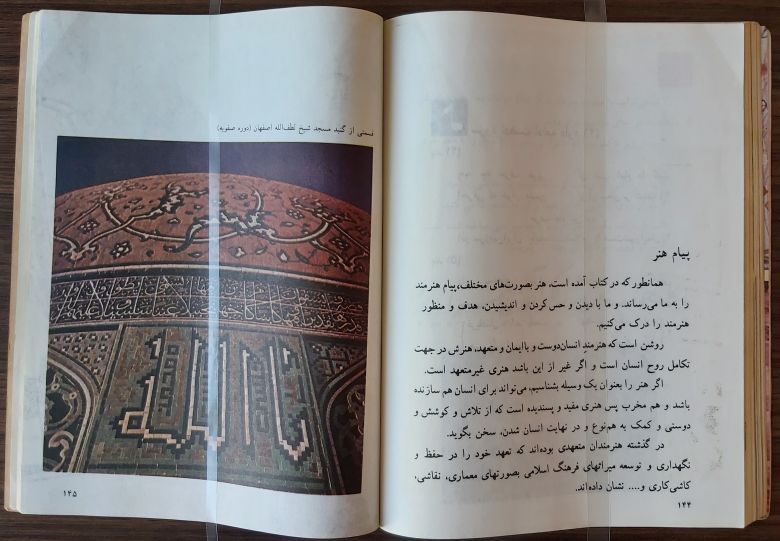 پیام هنر
همانطور که در کتاب آمده است، هنر بصورت‌های مختلف،پیام هنرمند
را به ما می‌رساند. و ما با دیدن و حس‌کردن و اندیشیدن، هدف و منظور
هنرمند را درک می‌کنیم.
روشن است که هنرمندِ انسان‌دوست و باایمان و متعهد، هنرش در جهت
تکامل روح انسان است و اگر غیر از این باشد هنری غیرمتعهد است.
اگر هنر را بعنوان یک وسیله بشناسیم، می‌تواند برای انسان هم سازنده
باشد و هم مخرب پس هنری مفید و پسندیده است که از تلاش و کوشش و
دوستی و کمک به هم‌نوع و در نهایت انسان شدن، سخن بگوید.
در گذشته هنرمندان متعهدی بوده‌اند که تعهد خود را در حفظ و
نگهداری و توسعه میراثهای فرهنگ اسلامی بصورتهای معماری، نقاشی،
کاشی‌کاری و.... نشان داده‌اند.
۱۴۴
قسمتی از گنبد مسجد شیخ لطف‌الله اصفهان (دوره صفویه)
۱۴۵